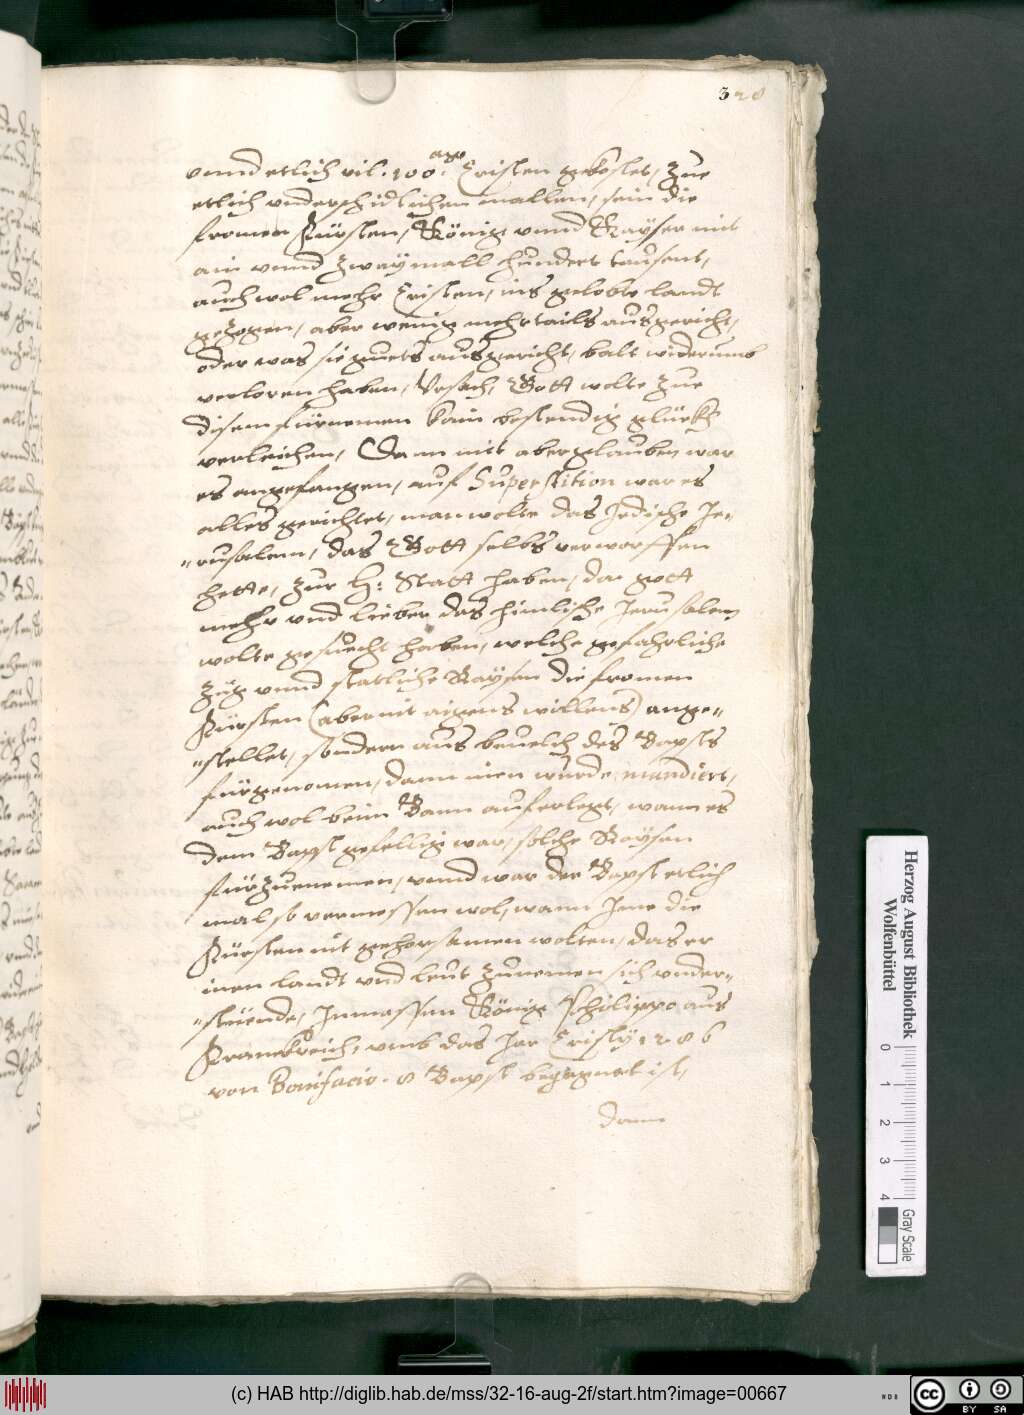 328
vnnd etlich vil . 100 . Cristen gekostet, Zue
etlich vnderschidlichen mallen, sein die
fromen Fürsten, König vnnd Kayser mit
ain vnnd zwaymall hundert tausent,
auch wol mehr Cristen, ins gelobte landt
gezogen, aber wenig mehrtails ausgericht,
oder was sie guets ausgericht, balt widerumb
verloren haben, Vrsach, Gott wolte Zue
disem fürnemen kain bestendig glückh
verleichen, Dann mit aberglauben war
es angefangen, auf Superstition war es
alles gerichtet, man wolte das Irdische Je-
"rusalem, das Gott selbs verworffen
hette, zur H: Statt haben, da gott
mehr vnd lieber das himlische Jerusalem
wolte gesuecht haben, welche gefahrliche
Züg vnnd statliche Raysen die fromen
Fürsten (aber nit aigens willens) ange"
"stellet, sondern aus beuelch des Bapsts
fürgenomen, dann inen wurde mandiert,
auch wol beim Bann auferlegt, wann es
dem Bapst gefellig war, solche Raysen
fürzuenemen, vnnd war der Bapst etlich
mal so vermessen wol, wann Ime die
Fürsten nit gehorsamen wolten, das er
inen landt vnd leut zunemen sich vnder"
"stüende, Inmassen König Philippo aus
Franckreich, vmb das Jar Cristy 1286
von Bonifacio . 8 Bapst begegnet ist,
dann
Herzog August Bibliothek
Wolfenbüttel
0 1 2 3 4
Gray Scale
(c) HAB http://diglib.hab.de/mss/32-16-aug-2f/start.htm?image=00667
WDB
cc BY SA